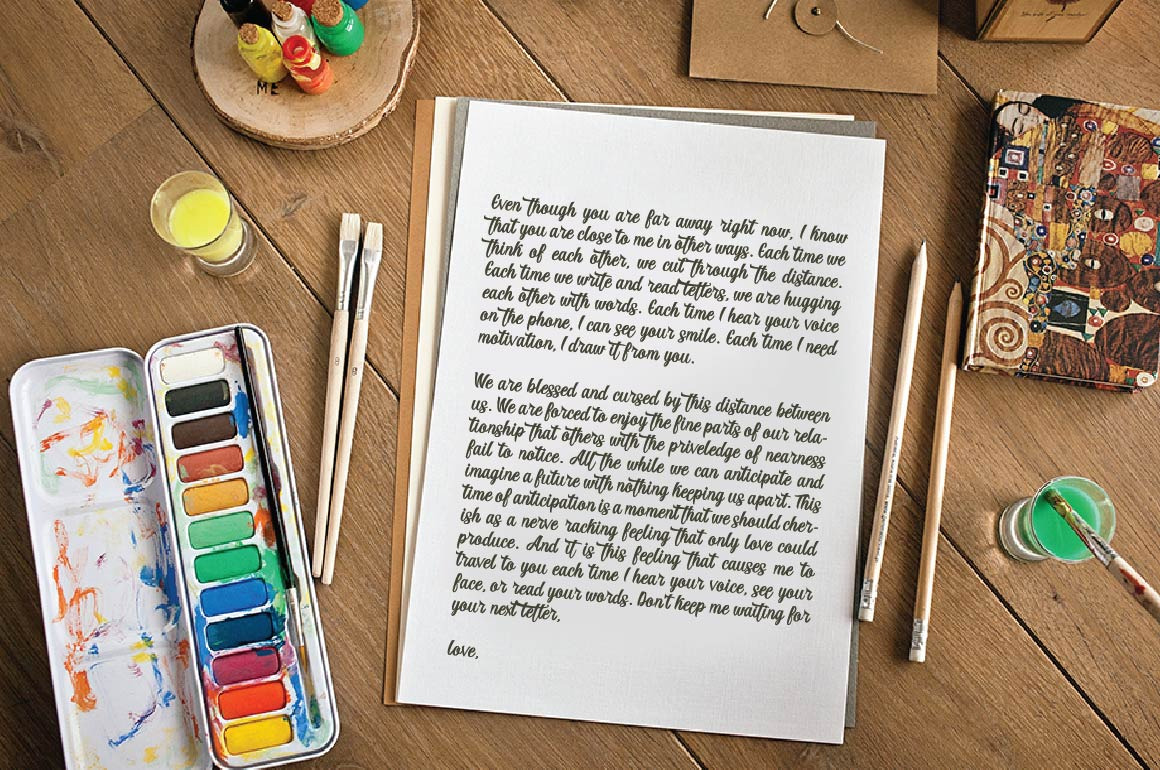 ME
Even though you are far away right now, I know
that you are close to me in other ways. Each time we
think of each other, we cut through the distance.
Each time we write and read letters, we are hugging
each other with words. Each time I hear your voice
on the phone, I can see your smile. Each time I need
motivation, I draw it from you.
We are blessed and cursed by this distance between
us. We are forced to enjoy the fine parts of our rela-
tionship that others with the priveledge of nearness
fail to notice. All the while we can anticipate and
imagine a future with nothing keeping us apart. This
time of anticipation is a moment that we should cher-
ish as a nerve racking feeling that only love could
produce. And it is this feeling that causes me to
travel to you each time I hear your voice, see your
face, or read your words. Don't keep me waiting for
your next letter,
love,